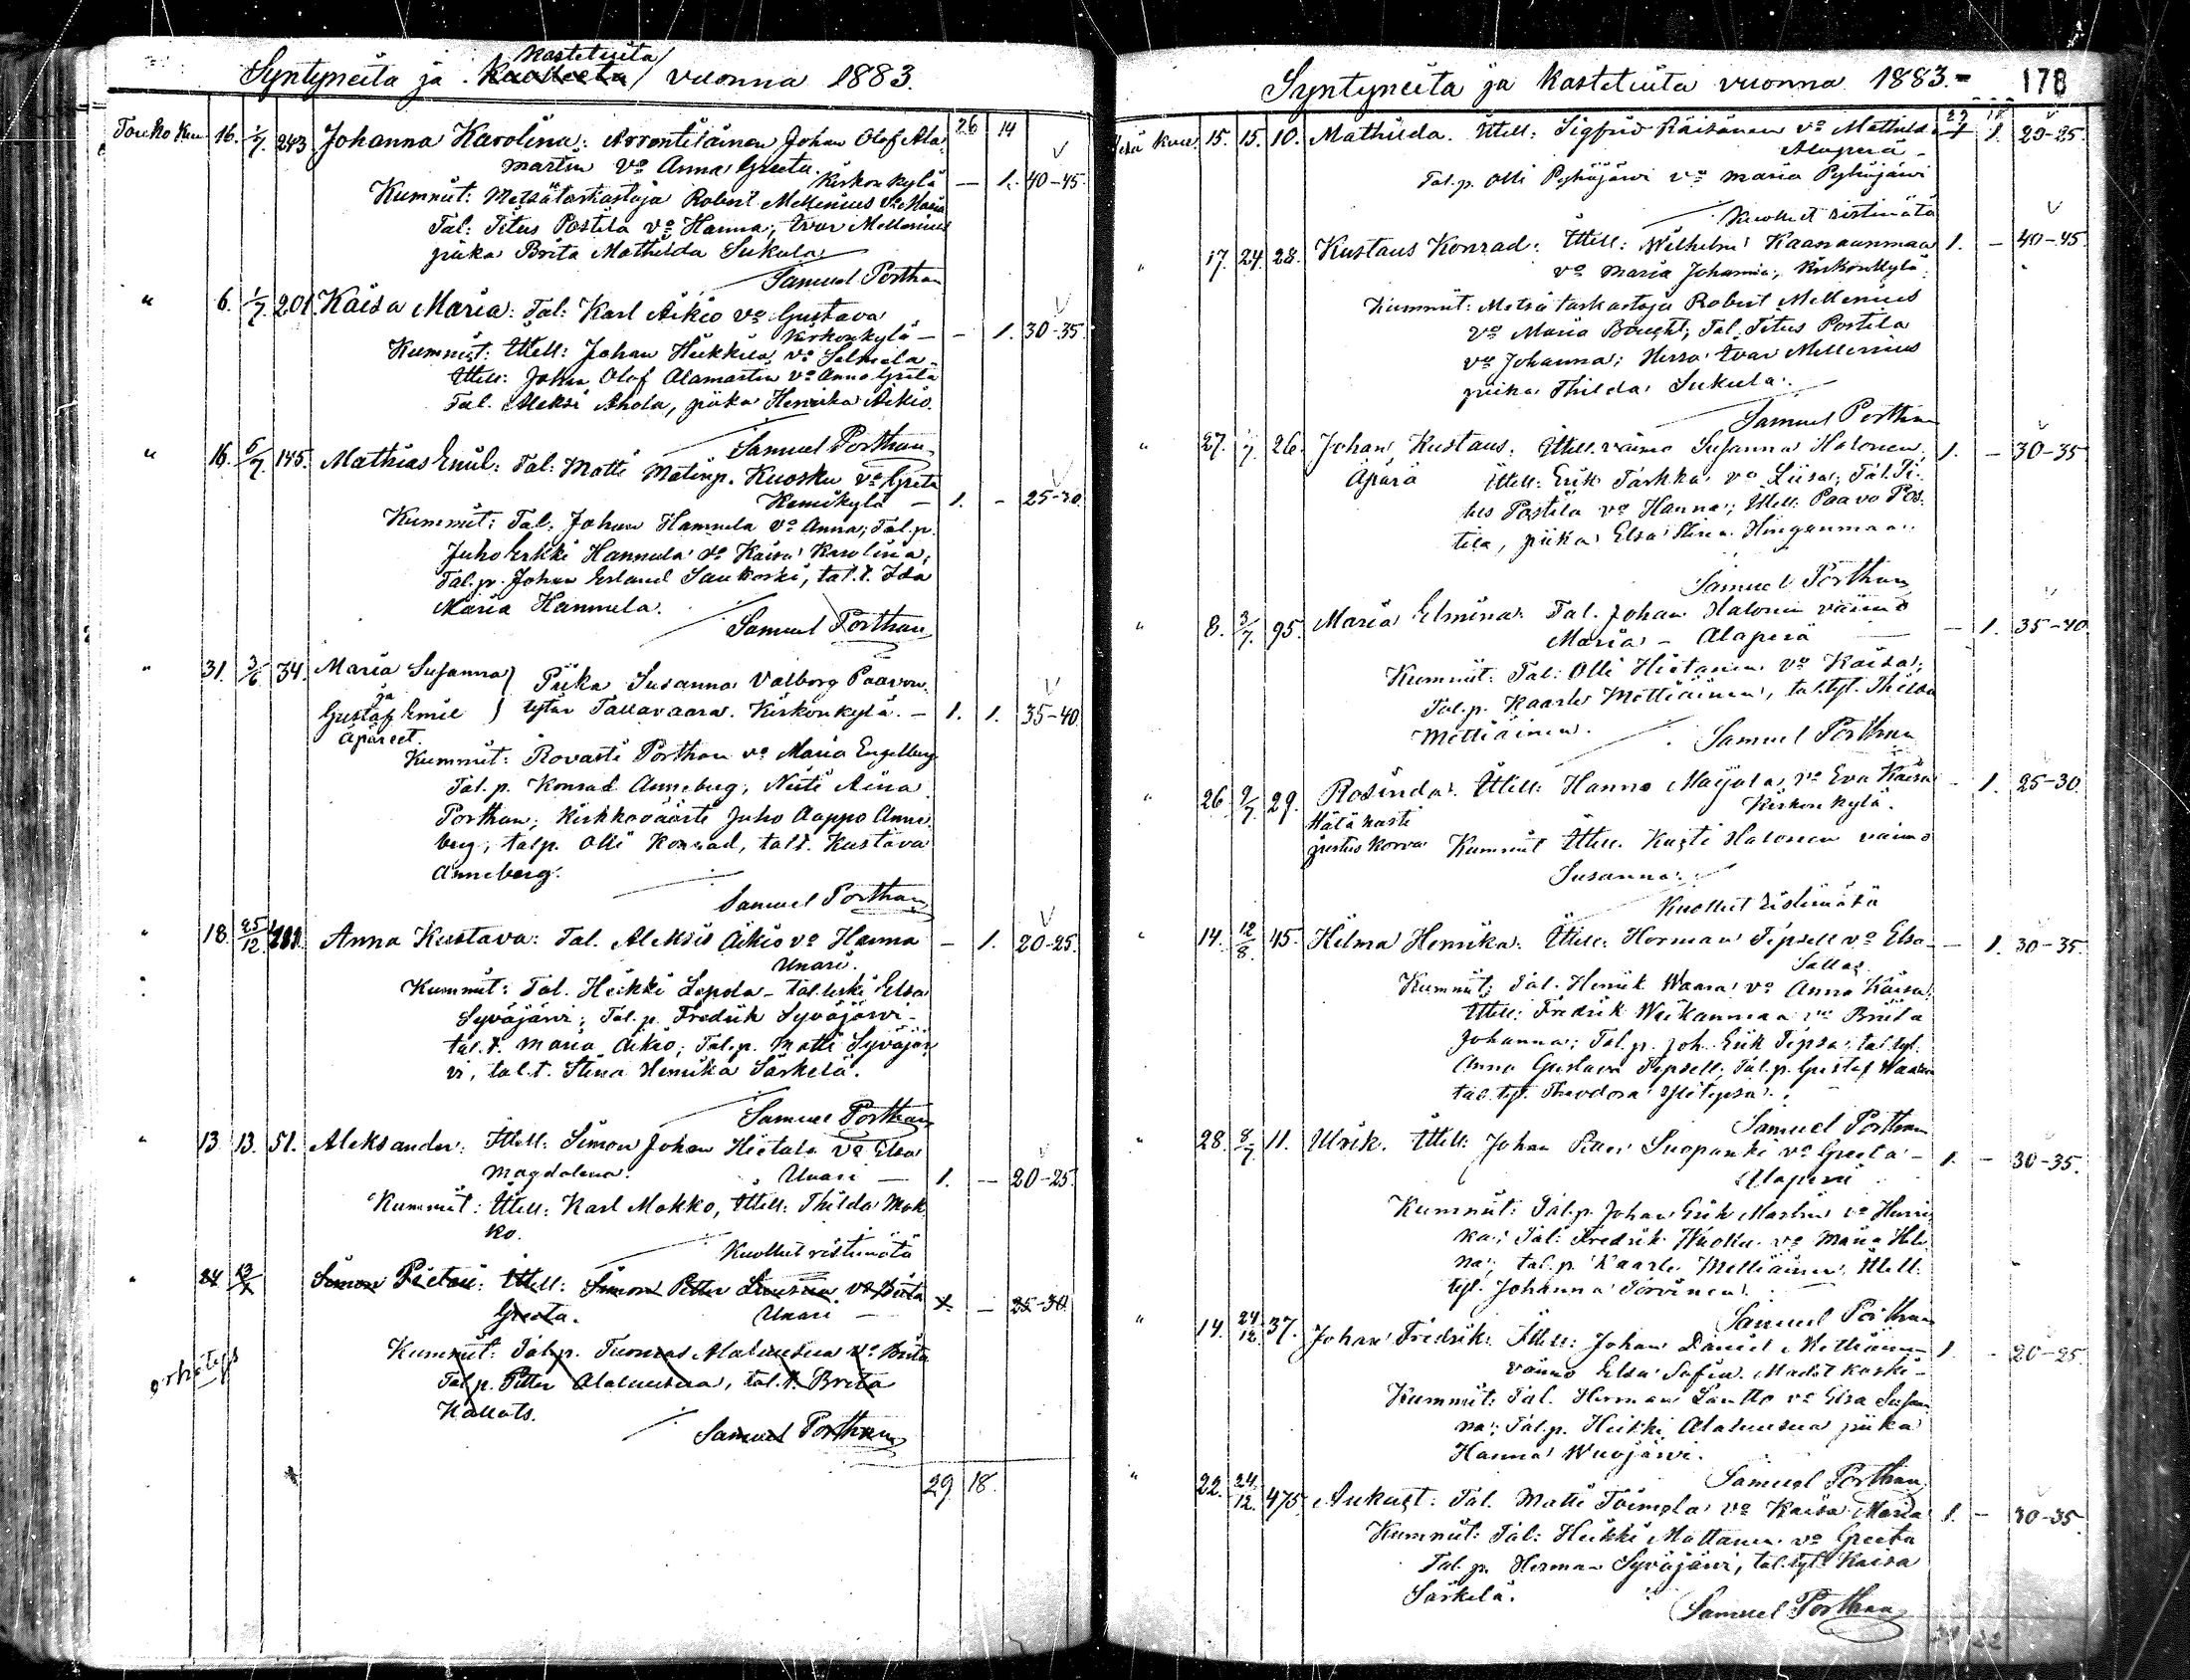 Kastetuita
Syntyneitä ja Kasteeta vuonna 1883.
26 14
Touko Kuu 16. 1/7. 243 Johanna Karolina: Arrontiläinen Johan Olof Ala
martin vo Anna Greeta.
Kirkonkylä — 1. 40-45.
Kummit: Metsätarkastaja Robert Mellenius vo Maria
Tal: Titus Postila vo Hanna; Ivar Mellenius
piika Brita Mathilda Sukula
Samuel Porthan
" 6. 1/7. 201 Kaisa Maria: Tal: Karl Aikio vo Gustava
Kirkonkylä — - 1. 30-35.
Kummit: Ittell: Johan Heikkila vo Selmela
Ittell: Johan Olof Alamartin vo Anna Greta
Tal. Aleksi Ahola, piika Henrika Aikio.
Samuel Porthan
" 16. 5/7. 145. Mathias Emil: Tal: Matti Matinp. Kuosku vo Greta
Kemikylä — 1. - 25-30.
Kummit: Tal: Johan Hannula vo Anna; Tal.p.
Juho Erkki Hannula vo Kaisa Karolina;
Tal.p. Johan Erland Saukoski, tal.t. Ida
Maria Hannula.
Samuel Porthan
" 31. 3/6. 34. Maria Susanna } Piika Susanna Valborg Paavon
ja
Gustaf Emil } tytär Tallavaara. Kirkonkylä. — 1. 1. 35-40.
Äpäreet.
Kummit: Rovasti Porthan vo Maria Engelberg
Tal.p. Konrad Anneberg; Neiti Aina
Porthan; Kirkkoväärti Juho Aappo Anne
berg, talp. Olli Konrad, tal.t. Kustava
Anneberg.
Samuel Porthan
" 18. 25/12. Anna Kustava: Tal. Aleksis Aikio vo Hanna - 1. 20-25.
Unari.
Kummit: Tal. Heikki Lepola - tal.leski Elsa
Syväjärvi; Tal.p. Fredrik Syväjärvi -
tal.t. Maria Aikio; Tal.p. Matti Syväjär
vi, tal.t. Stina Henrika Särkelä.
Samuel Porthan
" 13. 13. 51. Aleksander: Ittell: Simon Johan Hietala vo Elsa
Magdalena. Unari — 1. — 20-25.
Kummit: Ittell: Karl Mokko, Ittell: Thilda Mok
ko.
Kuollut ristimätä
" 24 13/X Simon Pietari: Ittell: Simon Petter vo Brita
Greeta. Unari — X. — 25-30.
Kummit: Tal.p. Tuomas Alaluusua vo Brita
Tal.p. Petter Alaluusua, tal.t. Brita
erhetys
Samuel Porthan
29 18.
Syntyneitä ja kastetuita vuonna 1883.- 178
Kesä kuu. 15. 15. 10. Mathilda. Ittell: Sigfrid Räisänen vo Mathilda 1. 20-25.
Alaperä -
Tal.p. Olli Pyhäjärvi vo Maria Pyhäjärvi
Kuollut ristimätä
" 17. 24. 28. Kustaus Konrad: Ittell: Wilhelm Kaaraanmaa 1. - 40-45.
vo Maria Johanna, Kirkonkylä
Kummit: Metsätarkastaja Robert Mellenius
vo Maria; Tal. Titus Postila
vo Johanna; Herra Ivar Mellenius
piika Thilda Sukula.
Samuel Porthan
" 27. 1/7. 26. Johan Kustaus. Ittell. vaimo Susanna Halonen. 1. - 30-35
Äpärä Ittell: Erik Tarkka vo Liisa; Tal. Ti-
tus Postila vo Hanna; Ittell: Paavo Pos.
tila, piika Elsa Stina Hinganmaa.
Samuel Porthan
" 8. 3/7. 95. Maria Elmina: Tal. Johan Halonen vaimo
Maria - Alaperä — - 1. 35-40.
Kummit: Tal: Olli Hietanen vo Kaisa;
Tal.p. Kaarle Mettiäinen, tal.tyt. Thilda
Mettiäinen.
Samuel Porthan
" 26 9/7. 29. Rosinda: Ittell: Hanno Maijala vo Eva Kaisa - 1. 25-30.
Kirkonkylä.
Hätäkasti
Justus Korva Kummit Ittell. Kusti Halonen vaimo
Susanna:
Kuollut ristimätä
" 14. 12/8. 45. Hilma Henrika: Ittell: Herman Tepsell vo Elsa - — 1. 30-35.
Sattas.
Kummit: Tal. Henrik Waara vo Anna Kaisa;
Ittell: Fredrik Weikanmaa vo Briita
Johanna; Tal.p. Joh. Erik Tepsa; tal.tyt.
Anna Gustava Tepsell; Tal.p. Gustaf Waara
tal.tyt. Theodora Ylitepsa.
Samuel Porthan
" 28. 8/7. 11. Ulrik. Ittell: Johan Petter Suopanki vo Greeta - 1. - 30-35.
Alaperä
Kummit: Tal.p. Johan Erik Martin vo Henri
ka; Tal: Fredrik Kuosku vo Maria Hele
na; tal.p. Kaarle Mettiäinen, Ittell.
tyt. Johanna Torvinen.
Samuel Porthan
" 14. 24/12. 37. Johan Fredrik: Ittell: Johan Daniel Mettiäinen 1. - 20-25.
vaimo Elsa Sofia. Madetkoski -
Kummit: Tal. Herman Lantto vo Elsa Susan
na; Tal.p. Heikki Alaluusua piika
Hanna Wuojärvi.
Samuel Porthan
" 22. 24/12. 475. Aukust: Tal. Matti Toimela vo Kaisa Maria 1. - 30-35.
Kummit: Tal: Heikki Mattanen vo Greeta
Tal.p. Herman Syväjärvi, tal.tyt. Kaisa
Särkelä.
Samuel Porthan